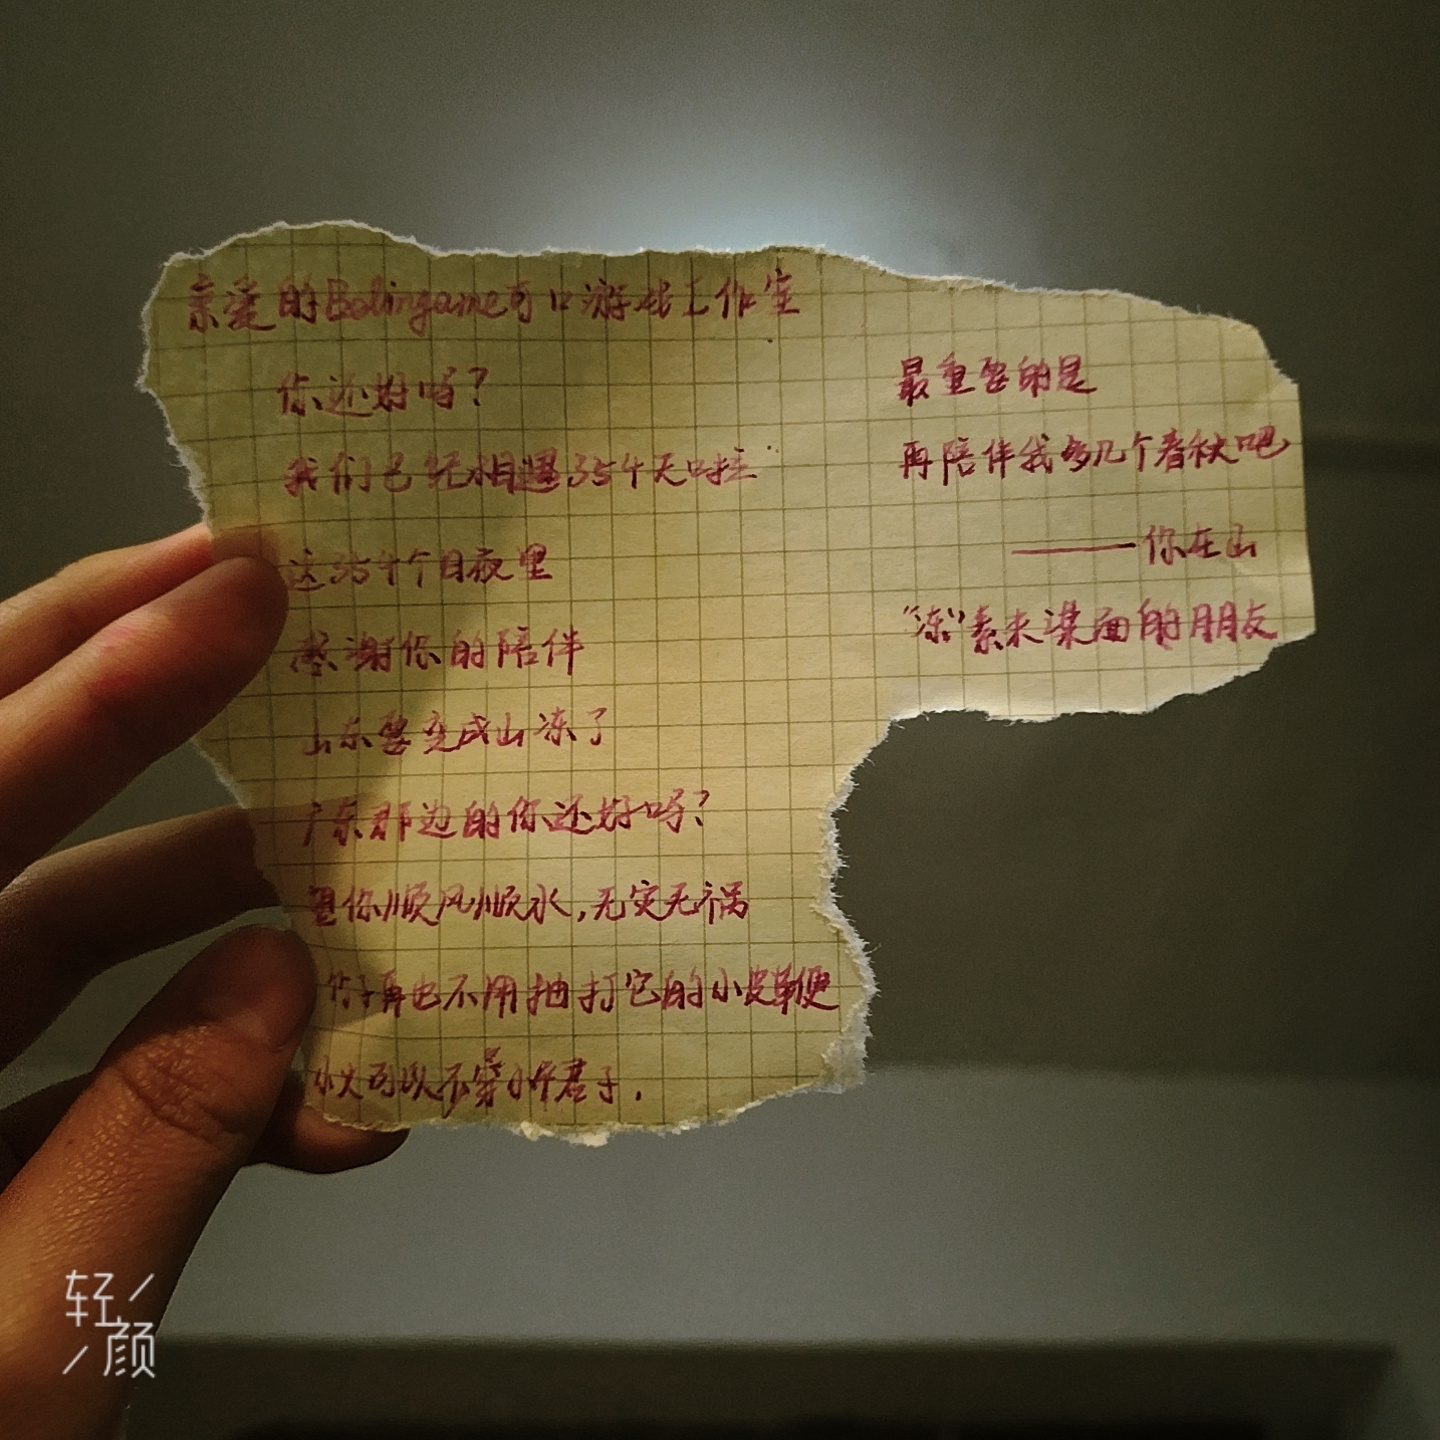 亲爱的Bolingame有口游戏工作室
你还好吗？
我们已经相遇354天啦
这354个日夜里
感谢你的陪伴
山东要变成山冻了
广东那边的你还好吗？
望你顺风顺水，无灾无祸
再也不用抽打它的小皮鞭
小火可以不等小怀君子.
最重要的是
再陪伴我多几个春秋吧
——你在山
“冻”素未谋面的朋友
轻颜